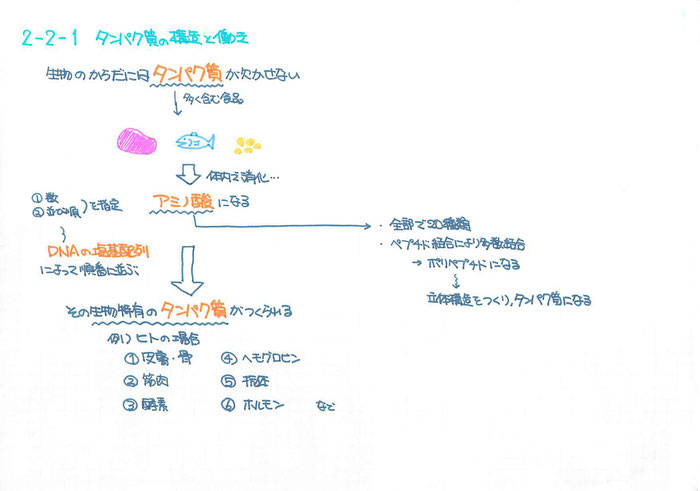 2-2-1 タンパク質の構造と働き
生物のからだには タンパク質 が欠かせない
多く含む食品。
体内で消化…
アミノ酸 になる
① 数
② 並び順 を指定
DNAの塩基配列
によって順番に並ぶ。
・全部で20種類
・ペプチド結合により多数結合
→ ポリペプチドになる
立体構造をつくり、タンパク質になる
その生物特有の タンパク質 がつくられる
例) ヒトの場合
① 皮膚・骨 ④ ヘモグロビン
② 筋肉 ⑤ 抗体
③ 酵素 ⑥ ホルモン など